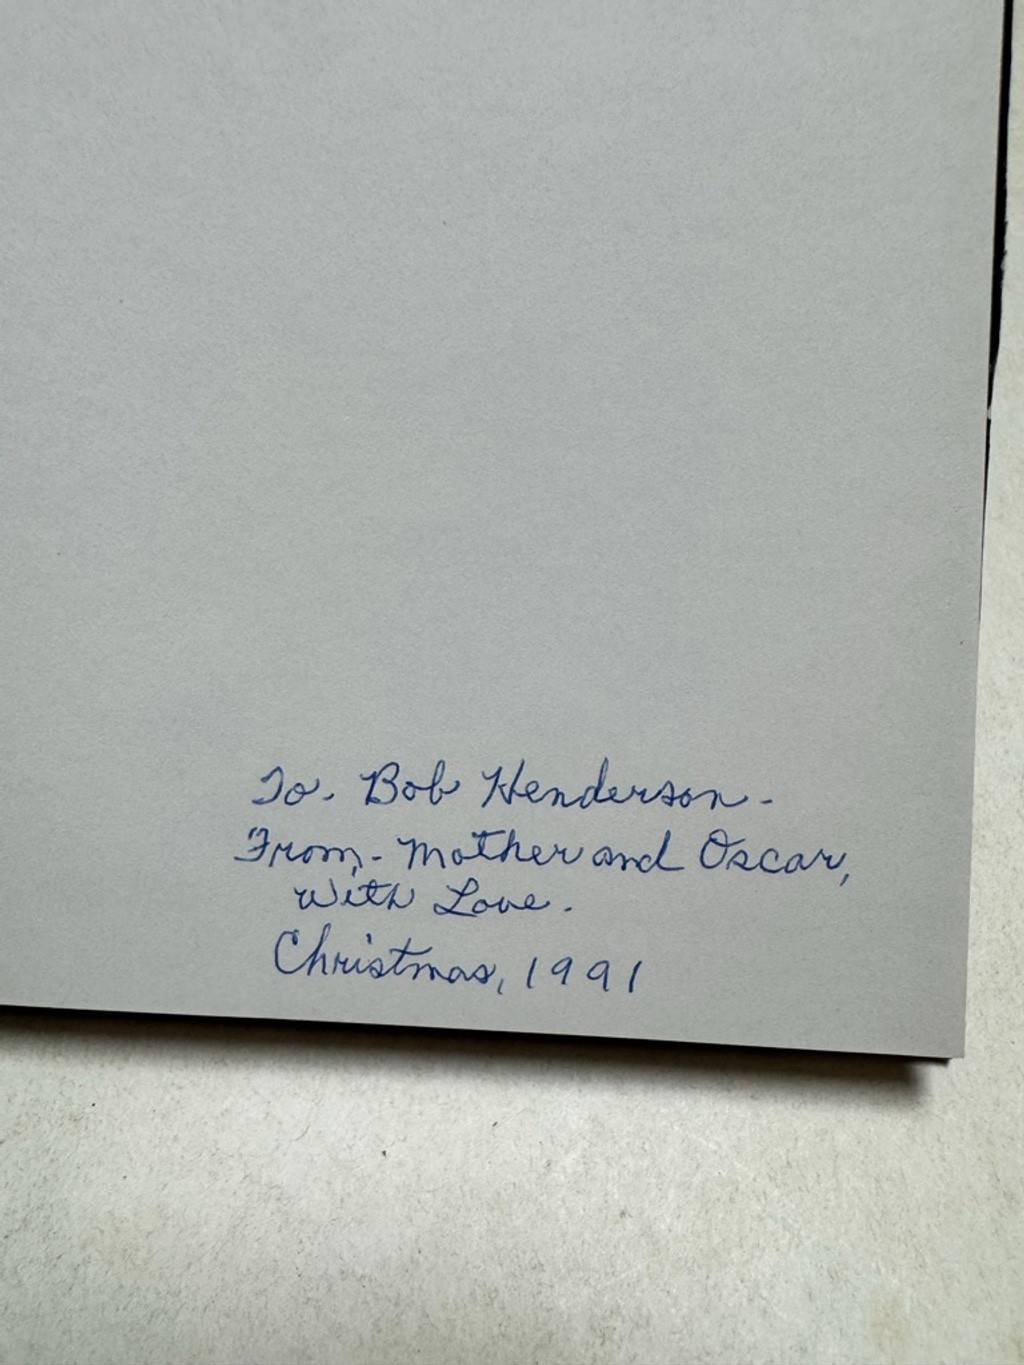 To. Bob Henderson-
From- Mother and Oscar,
With Love.
Christmas, 1991